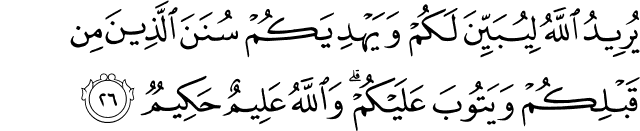 يُرِيدُ ٱللَّهُ لِيُبَيِّنَ لَكُمْ وَيَهْدِيَكُمْ سُنَنَ ٱلَّذِينَ مِن
قَبْلِكُمْ وَيَتُوبَ عَلَيْكُمْ ۗ وَٱللَّهُ عَلِيمٌ حَكِيمٌ ٢٦